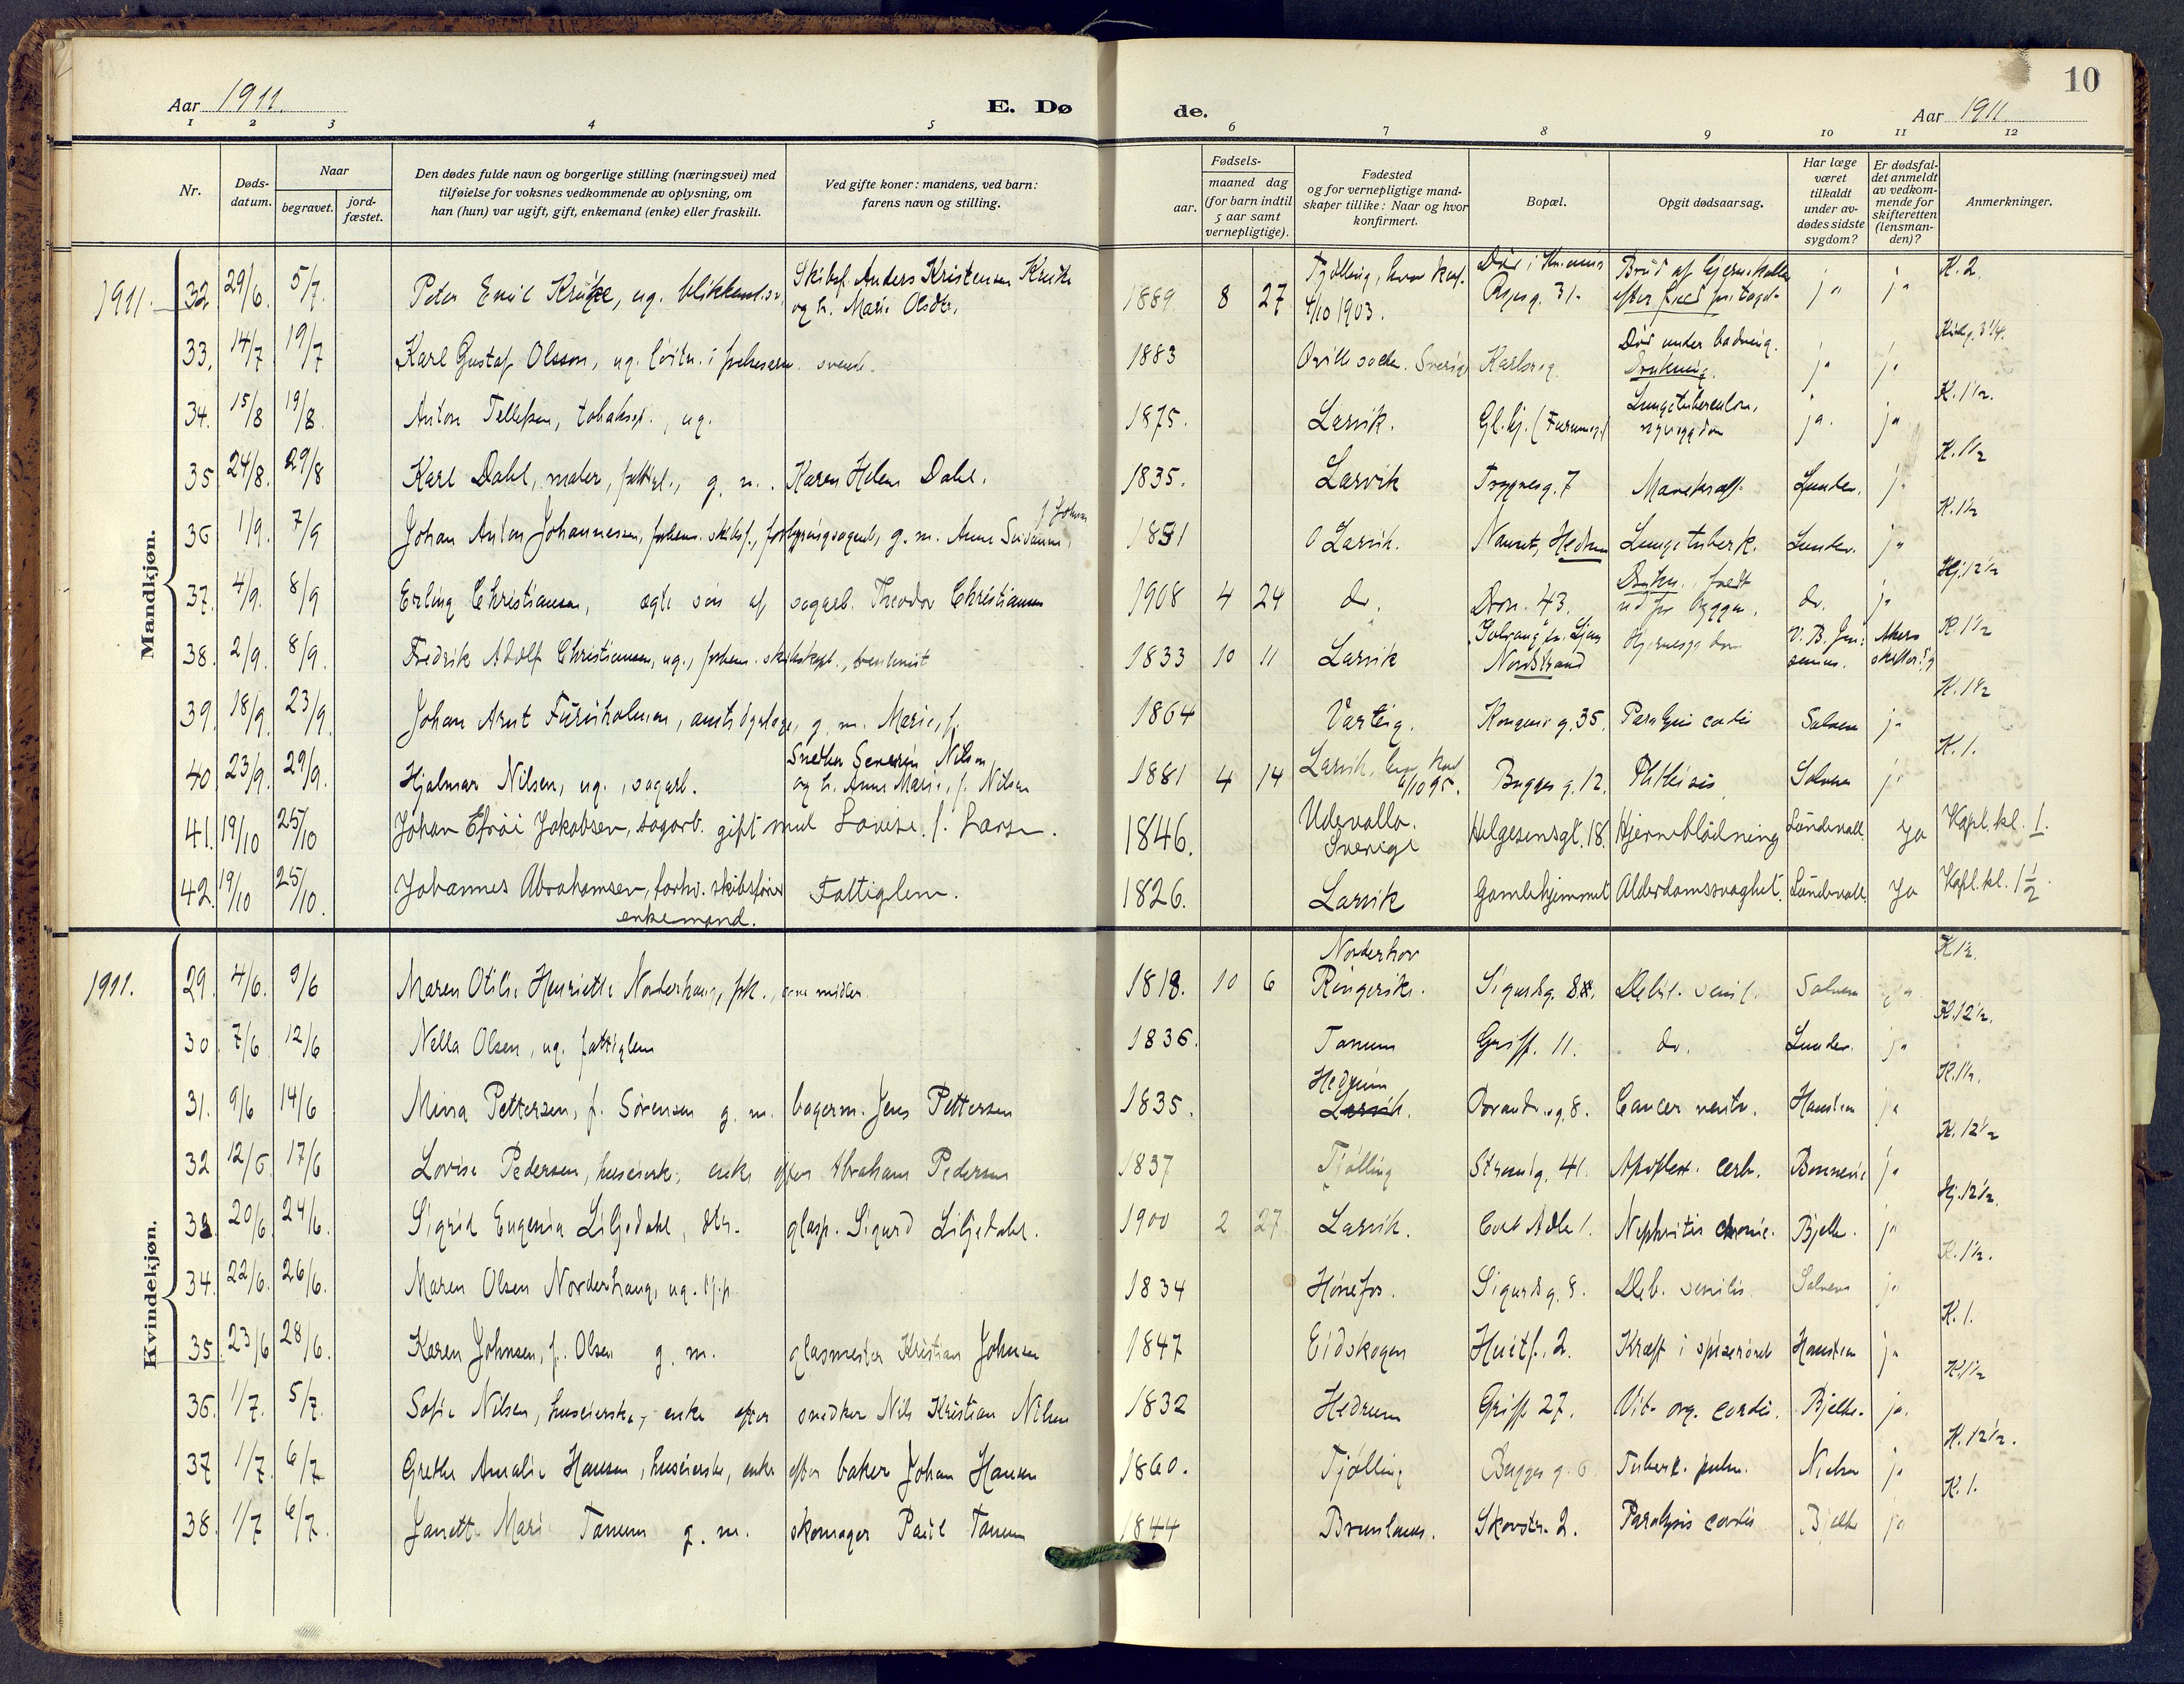 Aar 1911.
E. Døde.
Aar 1911.
10
1 2 3 4 5 6 7 8 9 10 11 12
Nr.
Døds-datum.
Naar
begravet.
jord-fæstet.
Den dødes fulde navn og borgerlige stilling (næringsvei) med
tilføielse for voksnes vedkommende av oplysning, om
han (hun) var ugift, gift, enkemand (enke) eller fraskilt.
Ved gifte koner: mandens, ved barn:
farens navn og stilling.
Fødsels-
aar.
maaned dag
(for barn indtil
5 aar samt
vernepligtige).
Fødested
og for vernepligtige mand-
skaper tillike: Naar og hvor
konfirmert.
Bopæl.
Opgit dødsaarsag.
Har læge
været
tilkaldt
under av-
dødes sidste
sygdom?
Er dødsfal-
det anmeldt
av vedkom-
mende for
skifteretten
(lensman-
den)?
Anmerkninger.
Mandkjøn.
1911. 32. 29/6. 5/7. Peter Emil Kruke, ug. Skibsf. Anders Kristensen Kruke og h. Marie Olsdtr. 1889 8 27 Tjølling, hvor konf. 4/10 1903. 31. ja ja K. 2.
33. 14/7 19/7 Karl Gustaf Olsson, ug. svensk. 1883 Sverige Karlsrog. Død under badning. Drukning. ja ja
34. 15/8 19/8. Anton Tellefsen, ug. 1875. Larvik. Gl. hj. ja. ja K. 1 1/2.
35 24/8. 29/8 Karl Dahl, maler, g. m. Karen Helene Dahl. 1835. Larvik Tryggvesg. 7 Mavekræft. Lunder. ja K. 1 1/2
36 1/9. 7/9 Johan Anton Johannessen, forhen. skibsf., g. m. Anne f. Johnsen 1831 Larvik. Nauret, Hedrum Lungetuberk. Lunder. ja K. 1 1/2
37. 4/9. 8/9 Erling Christiansen, ægte søn af sagarb. Theodor Christiansen 1908 4 24 do. Dron. 43. do. ja Hj. 12 1/2
38. 2/9. 8/9. Fredrik Adolf Christiansen, ug., forhen. skibskapt., 1833 10 11 Larvik Nordstrand Hjernesygdom K. 1 1/2
39. 18/9. 23/9. Johan Arnt Furuholmen, g. m. Marie, f. 1864 Varteig. Kongens g. 35. Paralysis cordis Solvern ja K. 1 1/2
40 23/9. 29/9. Hjalmar Nilsen, ug., sagarb. Snedker Severin Nilsen og h. Anne Marie, f. Nilsen 1881 4 14 Larvik, 95. Bugges g. 12. Phthisis Solvern ja K. 1.
41. 19/10 25/10 Johan Efrai Jakobsen, sagarb. gift med Lovise f. Larsen. 1846. Udevalla. Sverige Helgesensgt. 18. Hjerneblødning Lundevall. Ja Kapl. kl. 1.
42. 19/10 25/10. Johannes Abrahamsen, forhv. skibsfører enkemand. Fattiglem. 1826. Larvik Gamlehjemmet Alderdomssvaghet. Lundevall. Ja Kapl. kl. 1 1/2.
Kvindekjøn.
1911. 29. 4/6. 9/6 Maren Otilie Henriette Norderhaug, egne midler. 1818. 10 6 Norderhov Ringerike. Sigurdsg. 8. Debil. senil. Solvern ja K 1 1/2.
30 7/6. 12/6 Nella Olsen, ug. fattiglem 1836. Tanum Griff. 11. do. Lunder. ja K. 12 1/2.
31. 9/6 14/6 Mina Pettersen, f. Sørensen g. m. bagerm. Jens Pettersen 1835. Hedrum Larvik. 8. Cancer ventr. Hanstein ja K. 1 1/2.
32 12/6 17/6 Lovise Pedersen, huseierske, enke efter Abraham Pedersen 1837 Tjølling 41. Apoplex. cerb. Bonnevie ja K. 12 1/2
33. 20/6. 24/6. Sigrid Eugenia Liljedahl, dtr. glasp. Sigurd Liljedahl. 1900 2 27 Larvik. Cort Adle 1. Nephritis chronic. Bjelke. ja Hj. 12 1/2.
34. 22/6. 26/6. Maren Olsen Norderhaug, ug. 1834 Hønefos. Sigurdsg. 8. Deb. senilis Solvern ja K. 1 1/2.
35 23/6 28/6. Karen Johnsen, f. Olsen g. m. glasmester Kristian Johnsen 1847 Eidskogen Huitf. 2. Kræft i spiserøret Hanstein ja K. 1.
36. 1/7. 5/7. Sofie Nilsen, huseierske, enke efter snedker Nils Kristian Nilsen 1832 Hedrum Griff. 27. Vit. org. cordis. Bjelke. ja. K. 1 1/2
37 1/7. 6/7 Grethe Amalie Hansen, huseierske, enke efter baker Johan Hansen 1860. Tjølling Bugges g. 6 Tuberk. pulm. Nielsen ja K. 12 1/2.
38. 1/7 6/7. Janette Marie Tanum g. m. skomager Paul Tanum 1844 Brunlanes. Skovstr. 2. Paralysis cordis Bjelke ja K. 1.